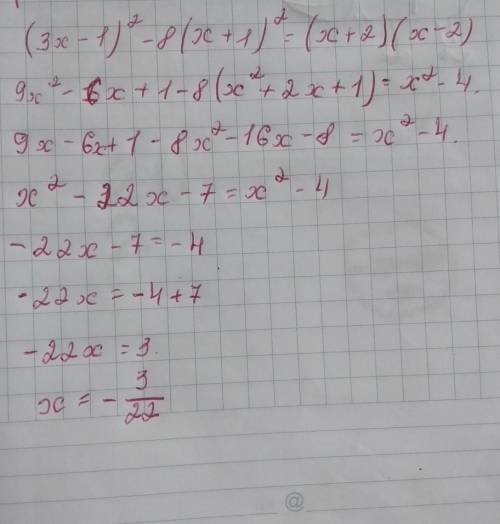 (3x-1)² - 8(x+1)² = (x+2)(x-2)
9x² - 6x + 1 - 8(x² + 2x + 1) = x² - 4.
9x - 6x + 1 - 8x² - 16x - 8 = x² - 4.
x² - 22x - 7 = x² - 4
- 22x - 7 = - 4
- 22x = - 4 + 7
- 22x = 3.
x = - 3/22
@